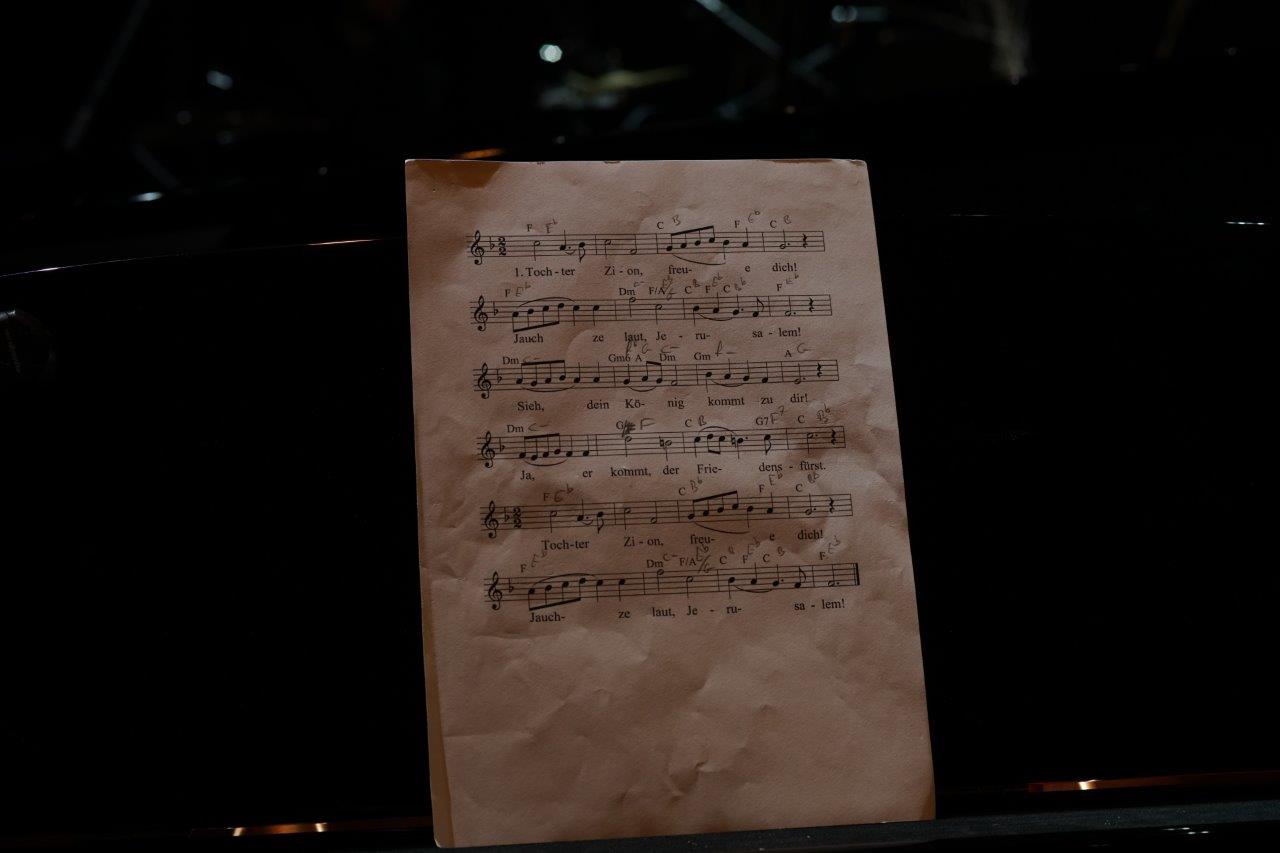 F E♭ C B F E♭ C B
1. Toch - ter Zi - on, freu- e dich!
F E♭ Dm C- F/A C B F E♭ C B♭ F E♭
Jauch ze laut, Je - ru- sa - lem!
Dm C- Gm6 A Dm C- Gm F- A G
Sieh, dein Kö- nig kommt zu dir!
Dm C- F C B G7 F7 C B♭
Ja, er kommt, der Frie- dens - fürst.
F E♭ C B♭ F E♭ C B♭
Toch-ter Zi - on, freu- e dich!
F E♭ Dm C- F/A E♭/G C B F E♭ C B F E♭
Jauch- ze laut, Je - ru- sa - lem!